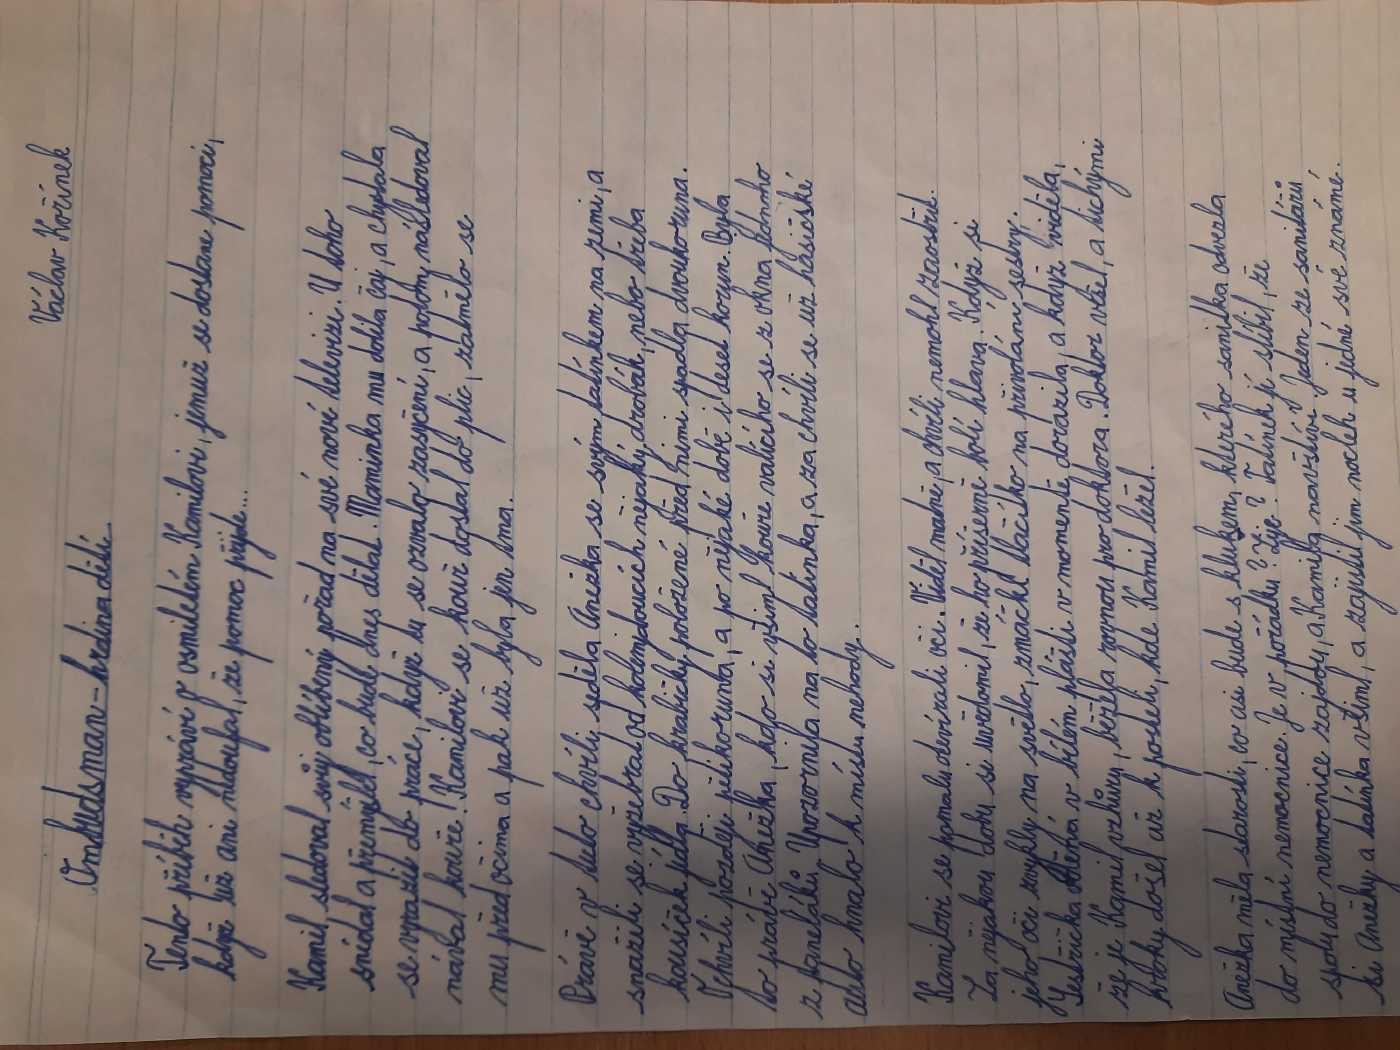 Václav Kořínek
Ombudsman - hrdina dětí.
Tento příběh vypráví o osmiletém Kamilovi, jemuž se dostane pomoci,
když už ani nedoufal, že pomoc přijde...
Kamil sledoval svůj oblíbený pořad na své nové televizi. U toho
snídal a přemýšlel, co bude dnes dělat. Maminka mu dělila čaj, a chystala
se vyrazit do práce, když tu se ozvalo zasyčení, a potom následoval
nával kouře. Kamilovi se kouř dostal do plic, zatmělo se
mu před očima a pak už byla jen tma.
Právě v tuto chvíli seděla Anežka se svým tatínkem na zemi, a
snažili se vyžebrat od kolemjdoucích nějaký drobák, nebo třeba
kousíček jídla. Do krabičky položené před nimi spadla dvoukoruna.
Chvíli později pětikoruna, a po nějaké době i deset korun. Byla
to právě Anežka, kdo si všiml kouře valícího se z okna jednoho
z paneláků. Upozornila na to tatínka, a za chvíli se už hasičské
auto hnalo k místu nehody.
Kamilovi se pomalu otevírali oči. Viděl matně, a chvíli nemohl zaostřit.
Za nějakou dobu si uvědomil, že ho příšerně bolí hlava. Když si
jeho oči zvykly na světlo, zmáčkl tlačítko na přivolání sestry.
Sestřička oblečená v bílém plášti v momentě dorazila, a když viděla,
že je Kamil vzhůru, běžela rovnou pro doktora. Doktor všel, a tichými
kroky došel až k posteli, kde Kamil ležel.
Anežka měla starosti, co asi bude s klukem, kterého sanitka odvezla
do místní nemocnice. Je v pořádku? Žije? Tatínek jí slíbil, že
spolu do nemocnice zajdou, a Kamila navštíví. Jeden ze sanitářů
si Anežky a tatínka všiml, a zajistil jim nocleh u jedné své známé.